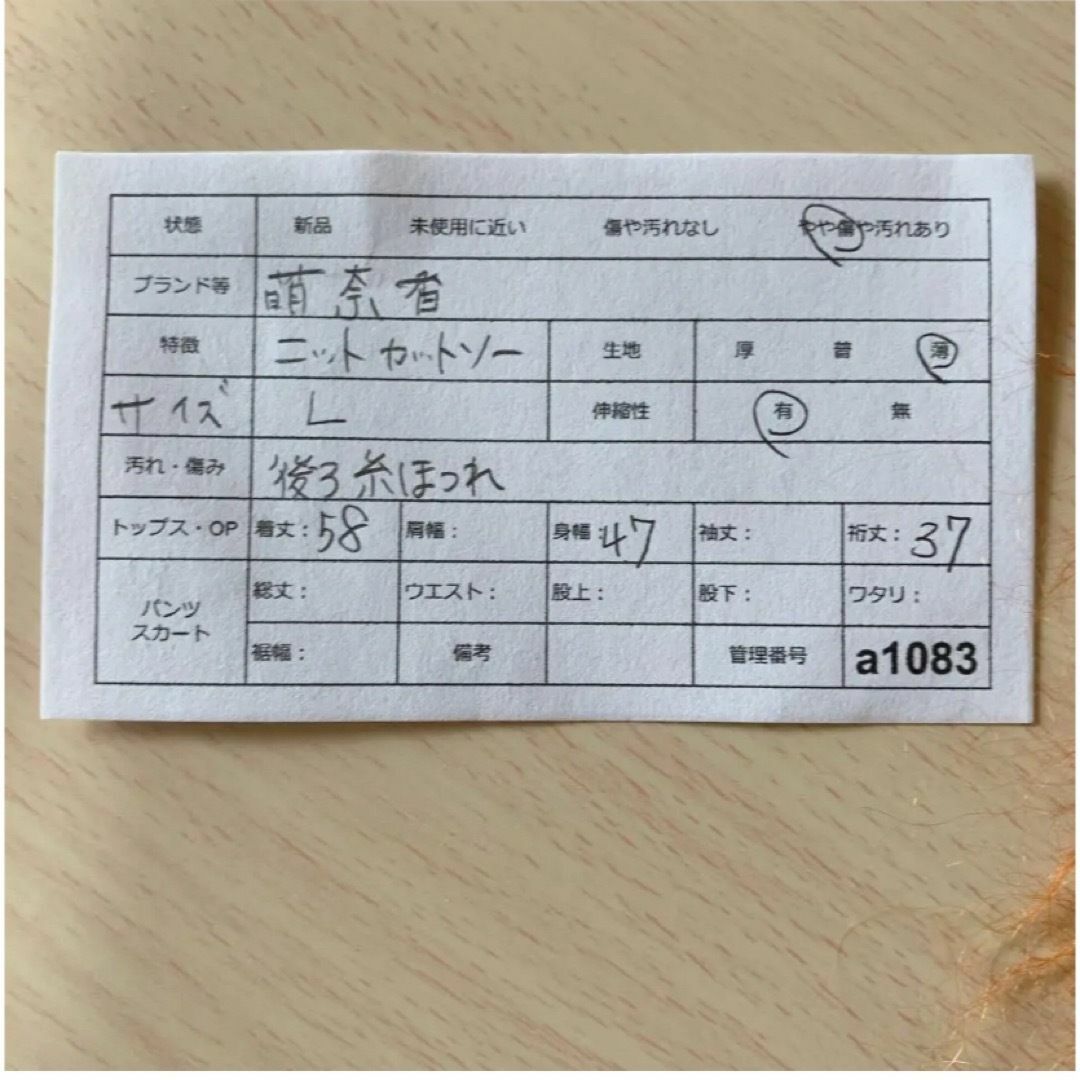 状態 新品 未使用に近い 傷や汚れなし やや傷や汚れあり
ブランド等 萌奈香
特徴 ニットカットソー 生地 厚 普 薄
サイズ L 伸縮性 有 無
汚れ・傷み 後ろ糸ほつれ
トップス・OP 着丈：58 肩幅： 身幅：47 袖丈： 裄丈：37
パンツ
スカート
総丈： ウエスト： 股上： 股下： ワタリ：
裾幅： 備考 管理番号 a1083